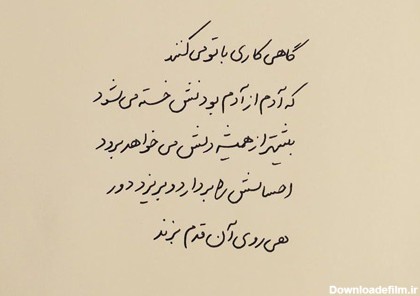 گاهی کاری با تو می کنند
که آدم از آدم بودنش خسته می شود
بیشتر از همیشه دلش می خواهد برود
احساسش را بردارد و بریزد دور
هی روی آن قدم بزند
Downloadefilm.ir